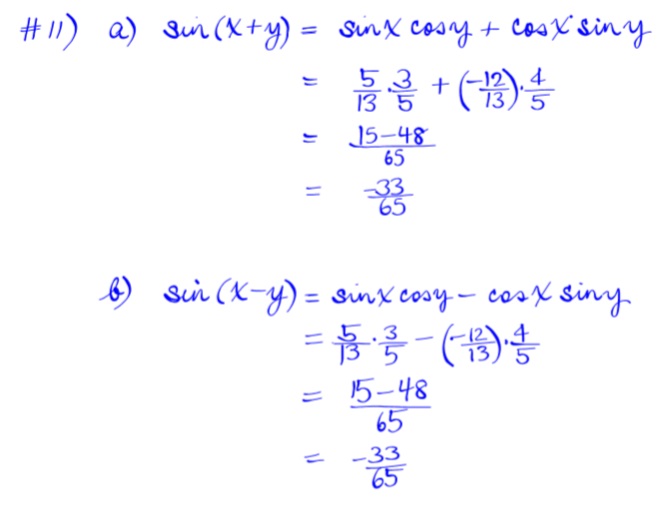 #11) a) sin(x+y) = sinx cosy + cosx siny
= 5/13 · 3/5 + (-12/13) · 4/5
= 15-48/65
= -33/65
b) sin(x-y) = sinx cosy - cosx siny
= 5/13 · 3/5 - (-12/13) · 4/5
= 15-48/65
= -33/65